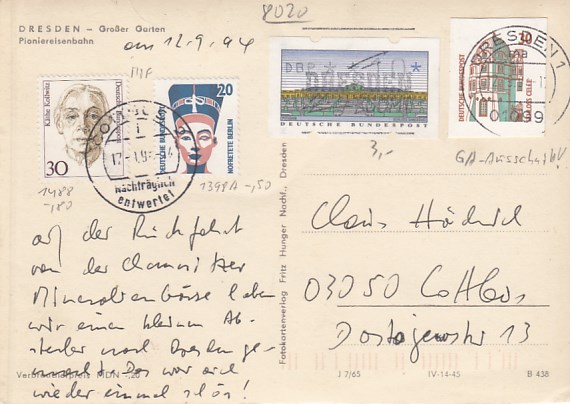 8020
DRESDEN – Großer Garten
Pioniereisenbahn
am 12.9.94
Käthe Kollwitz
Deutsche Bundespost
30
20
DEUTSCHE BUNDESPOST
NOFRETETE BERLIN
Nachträglich
entwertet
1488
-,80
1398A -,50
DBP
DRESDEN
DEUTSCHE BUNDESPOST
3,-
10
DEUTSCHE BUNDESPOST
CELLE
DRESDEN 1
01099
GA-Ausschnitt!
auf der Rückfahrt
von der Chemnitzer
Mineralienbörse haben
wir einen kleinen Ab-
stecher nach Dresden ge-
macht. Das war auch
wieder einmal schön!
Verbraucherpreis MDN -,20
Fotokartenverlag Fritz Hunger Nachf., Dresden
Claus
03050 Cottbus
Dostojewskistr 13
J 7/65
IV-14-45
B 438